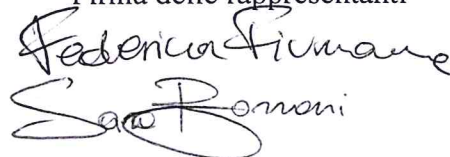 Firma delle rappresentanti
Federica Fiumane
Sara Bonnoni